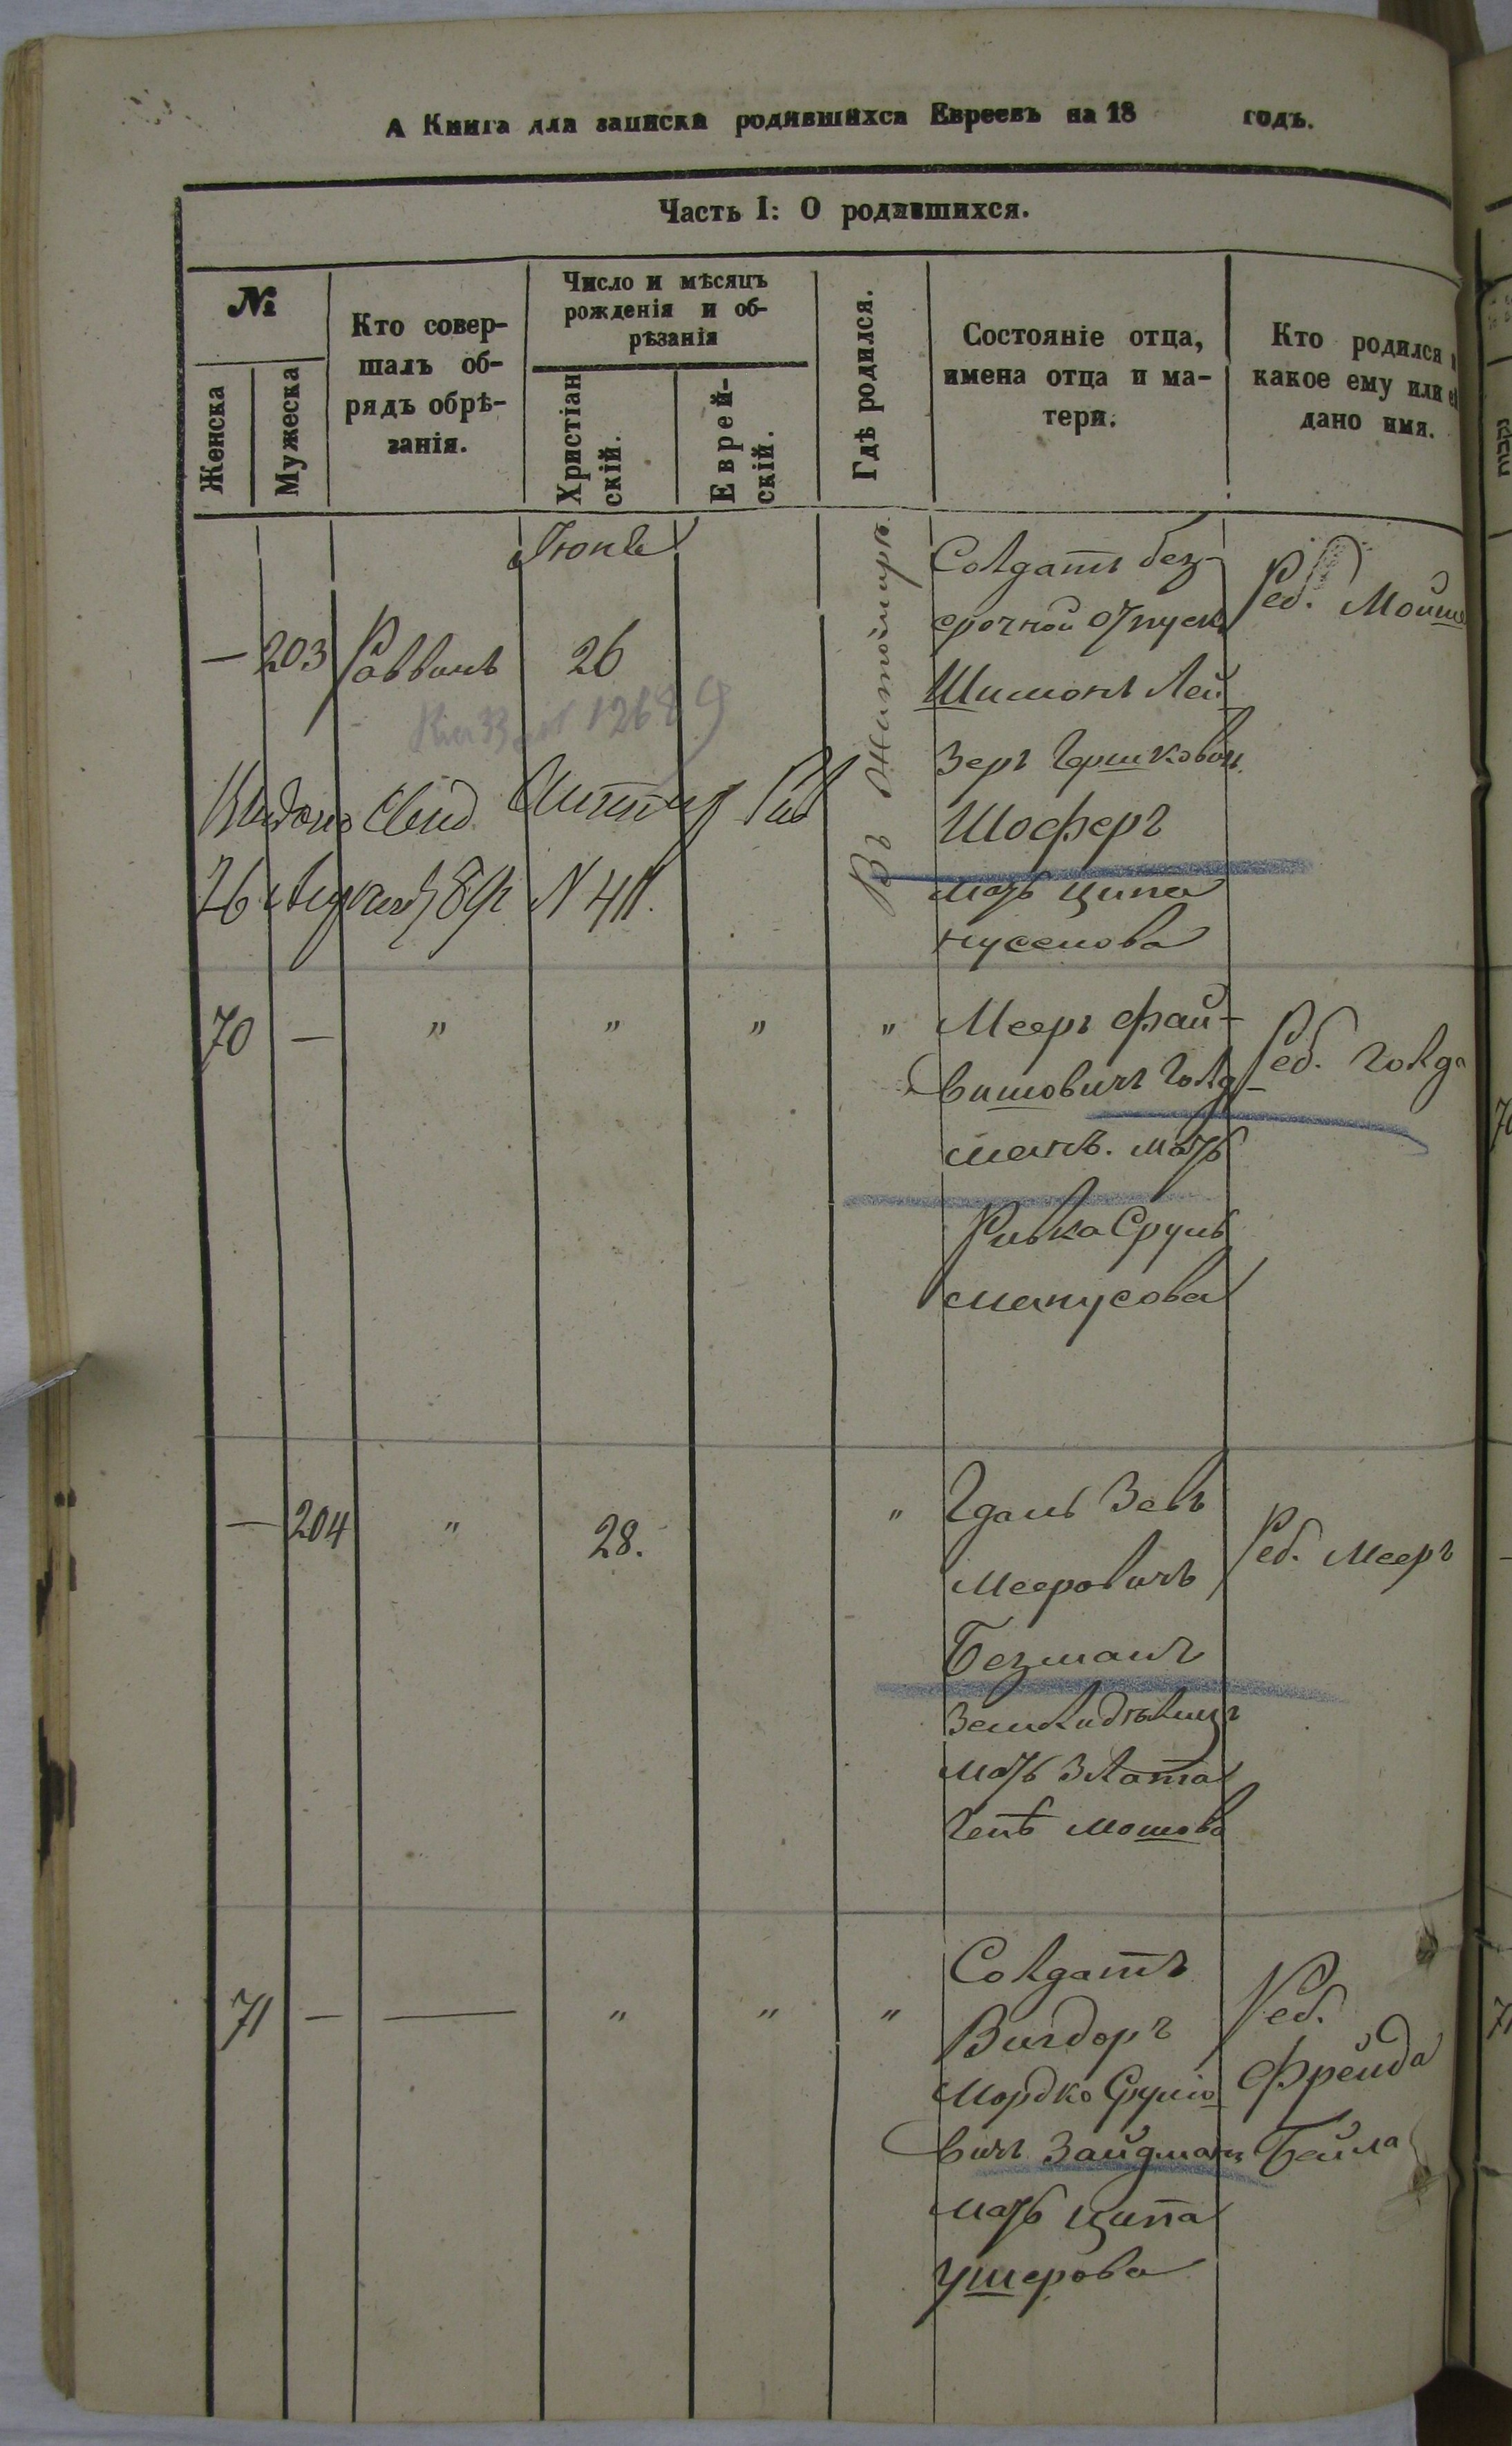 А Книга для записки родившихся Евреевъ на 18 годъ.
Часть I: О родившихся.
№
Женска
Мужеска
Кто совер-
шалъ об-
рядъ обрѣ-
занія.
Число и мѣсяцъ
рожденія и об-
рѣзанія
Христіан
скій.
Еврей-
скій.
Гдѣ родился.
Состояніе отца,
имена отца и ма-
тери.
Кто родился
какое ему или
дано имя.
Іюнь
— 203 Раввинъ 26
Въ Житомирѣ
Солдатъ без-
срочной отпуск
Шимонъ Лей
зеръ Гершкович
Шоферъ
мать Ципа
Нусенова
Реб. Мойше
12689
Выдано Свид
26 189 N 411.
70 — " " " "
Мееръ Фай-
вишовичъ Голд-
манъ. мать
Ривка Сруль
Манусова
Реб. Голда
— 204 " 28. "
Гдаль Зевъ
Мееровичъ
Безманъ
мать Злата
Гень Мошова
Реб. Мееръ
71 — — " " "
Солдатъ
Вигдоръ
Мордко Срулю
вичъ Зайдманъ
мать Ципа
Ушерова
Реб.
Фрейда
Бейла